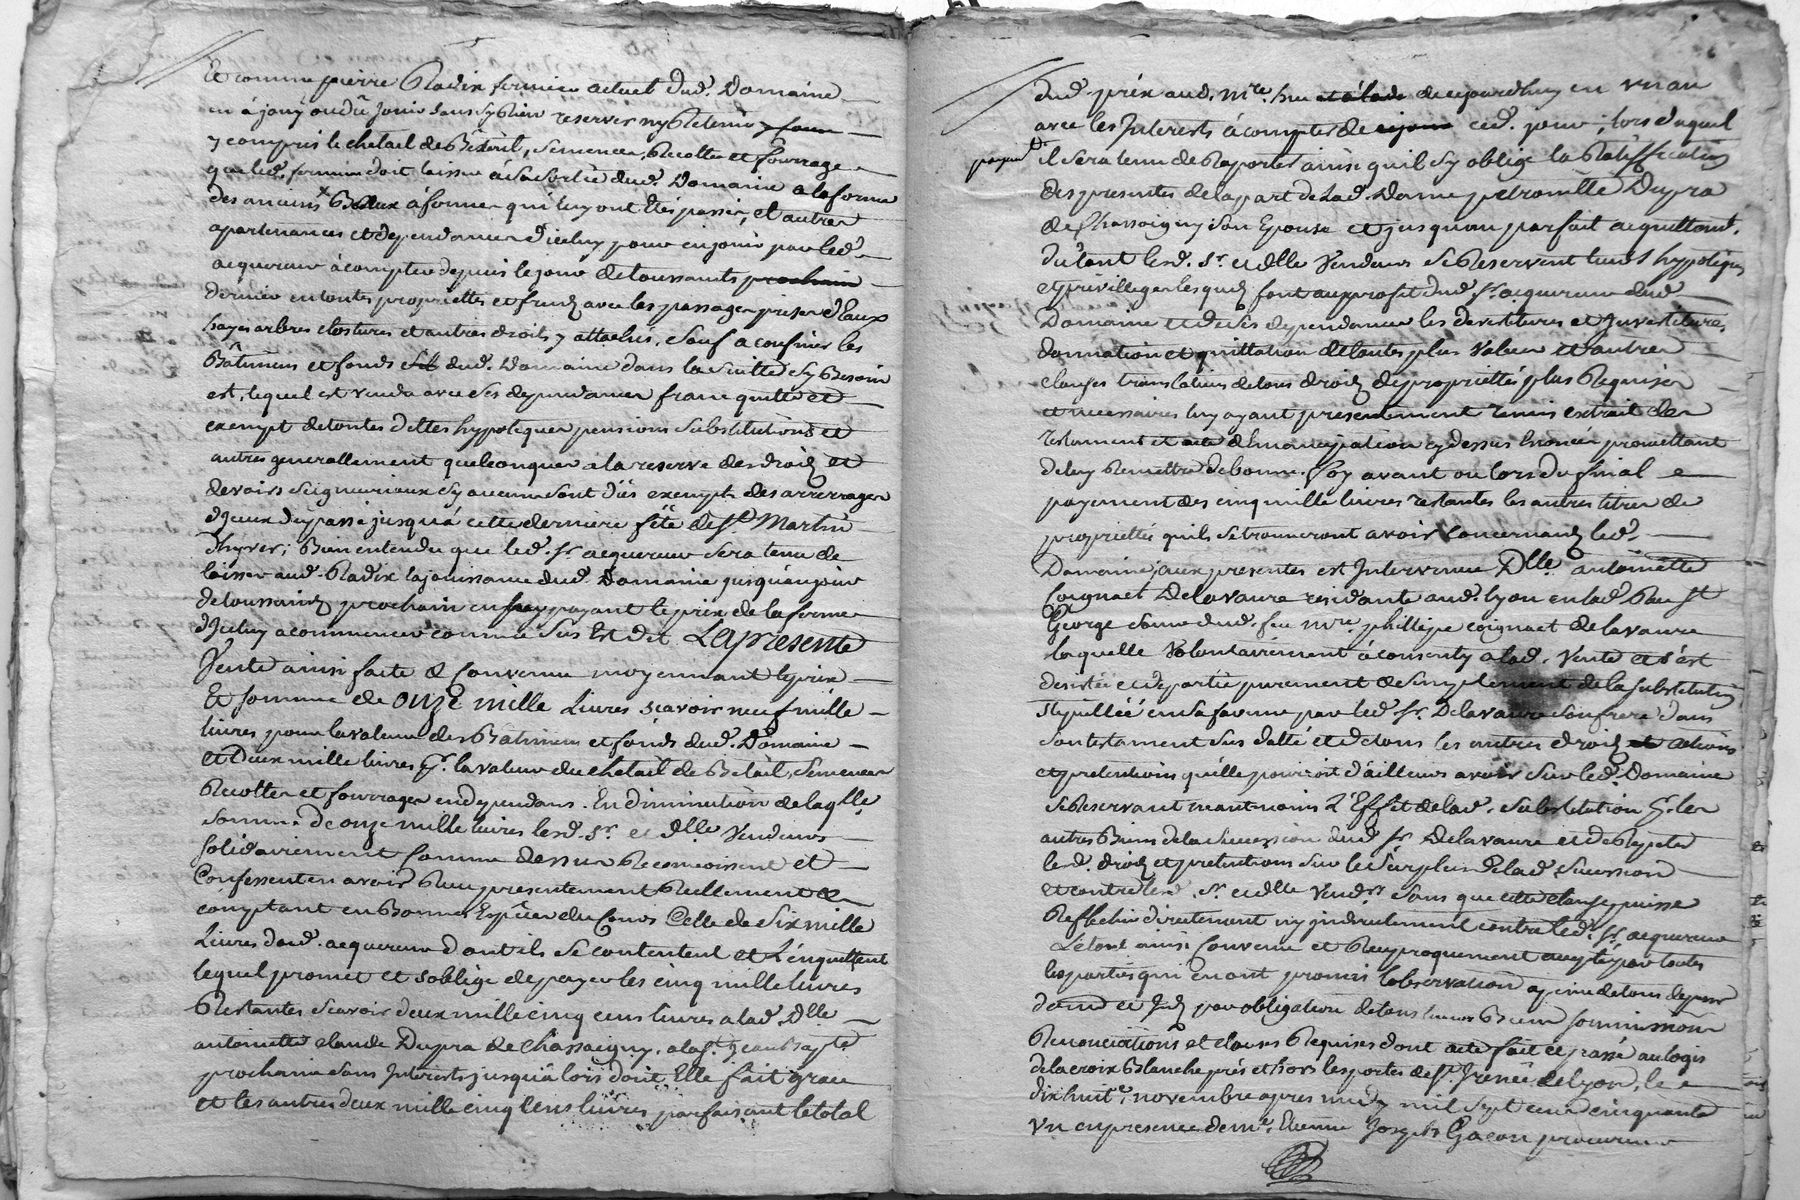 Et comme pierre Radix fermier actuel dud. Domaine
en à jouy ou dû Jouir sans Sy Rien reserver ny Retenir
y compris le chetail de Bétail, Semences, Recoltes et fourrages
que led. fermier doit laisser à sa Sortie dud. Domaine a la forme
des anciens Baux à fermes qui luy ont étés passés, et autres
apartenances et dependances d'iceluy pour en jouir par led.
acquereur à compter depuis le jour de toussaints prochain
dernier en toutes proprietes et fruits avec les passages prises d'Eaux
hayes arbres clostures et autres droits y attachés, sauf a confiner les
Bâtimens et fonds dud. Domaine dans la suitte sy Besoin
est, lequel est vendu avec ses dependances franc quitte et
exempt de toutes dettes hypoteques pensions Substitutions et
autres generallement quelconques a la reserve des droits et
devoirs Seigneuriaux sy aucuns sont dûs exempts des arrerages
d'iceux du passé jusquá cette derniere fête de St. Martin
d'hyver; Bien entendu que led. Sr. acquereur sera tenu de
laisser aud. Radix la jouissance dud. Domaine jusquau jour
de toussaints prochain en payant le prix de la ferme
d'Iceluy a commencer comme Sus Est dit La presente
Vente ainsi faite & Convenue moyennant le prix
Et somme de onze mille Livres sçavoir neuf mille
livres pour la valeur des Bâtimens et fonds dud. Domaine
et Deux mille livres pr. la valeur du chetail de Betail, Semences
Recoltes et fourrages en dependans. En diminution de laqlle
somme de onze mille livres lesd. Sr. et Dlle Vendeurs
solidairement Comme dessus Reconnoissent et
Confessent en avoir Reçu presentement Reellement &
comptant en Bonnes Espéces du Cours Celle de Six mille
Livres dud. acquereur dont ils se contentent et L'enquittent
lequel promet et s'oblige de payer les cinq mille livres
Restantes Scavoir deux mille cinq cens livres a lad. Dlle
antoinette claude Dupra de Chassaigny, a la St. Jean Bapte
prochaine sans Interests jusqu'à lors dont Elle fait grace
et les autres deux mille cinq Cens livres parfaisant le total
dud. prix aud. Mre. de cejourdhuy en un an
avec les Interests à compter de cejour ced. jour; lors duquel
payemt.
il sera tenu de Raporter ainsi quil sy oblige la Ratiffication
des presentes de la part de Lad. Dame petronille Dupra
de Chassaigny Son Epouse et jusquau parfait acquittemt.
du tout lesd. Sr. et Dlle Vendeurs Se Reservent leurs hypoteques
et privilleges lesquels font au proffit dud. Sr. acquereur dud.
Domaine et de ses dependances les devestitures et Investitures
donnation et quittation de toutes plus Values et autres
clauses translatives de tous droits de proprietés plus Requises
et necessaires luy ayant presentement remis extrait des
testament et acte d'Emancipation cy dessus énoncés promettant
de luy Remettre de bonne foy avant ou lors du final
payement des cinq mille livres restantes les autres titres de
proprietés quils se trouveront avoir concernants led.
Domaine; aux presentes est Intervenue Dlle. antoinette
Coignact Delavaure residante aud. Lyon en lad. Rue St
George soeur dud. feu Mre. phillipe coignact delavaure
laquelle Volontairement à consenty a lad. Vente et s'est
desistée et departie purement & simplement de la substitution
stipullée en sa faveur par led. Sr. Delavaure son frere dans
son testament sus datté et de tous les autres droits et actions
et pretentions qu'elle pourroit d'ailleurs avoir Sur led. Domaine
se Reservant neantmoins L'Effet de lad. Substitution pr. les
autres Biens de la Succession dud. Sr. Delavaure et de Repeter
lesd. droits et pretentions sur le surplus de lad. Succession
et contre lesd. Sr. et Dlle Vendrs. sans que cette clause puisse
Reflechir directement ny indirectement contre led. Sr. acquereur
Le tout ainsi Convenu et Reciproquement accepté par toutes
les parties qui En ont promis l'observation a peine de tous depens
dom. et Ints par obligation de tous leurs Biens soumissions
Renonciations et clauses Requises dont acte fait et passé au logis
de la croix Blanche prés et hors les portes de St. Irenée de Lyon, le
dix huite. novembre apres midy mil sept cens cinquante
un en presence de Me. Etienne Joseph Gacon procureur